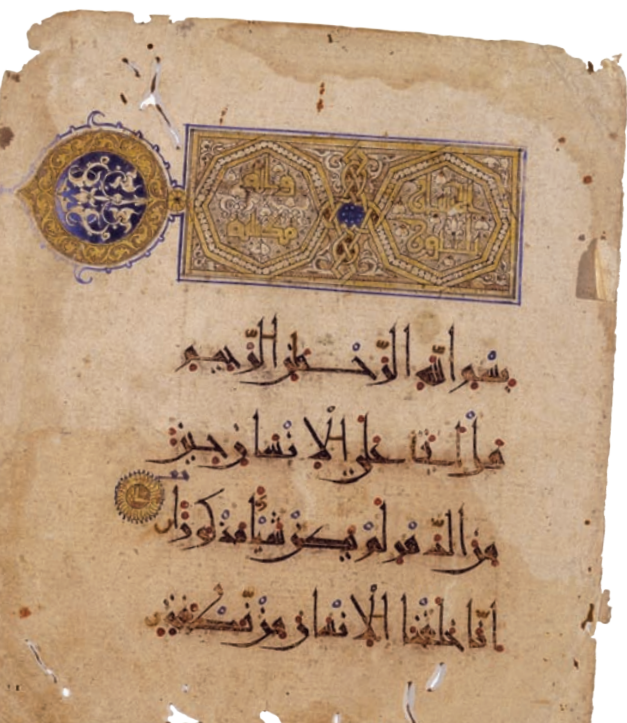 بسم الله الرحمن الرحيم
هل اتى على الانسان حين
من الدهر لم يكن شيئا مذكورا
انا خلقنا الانسان من نطفة